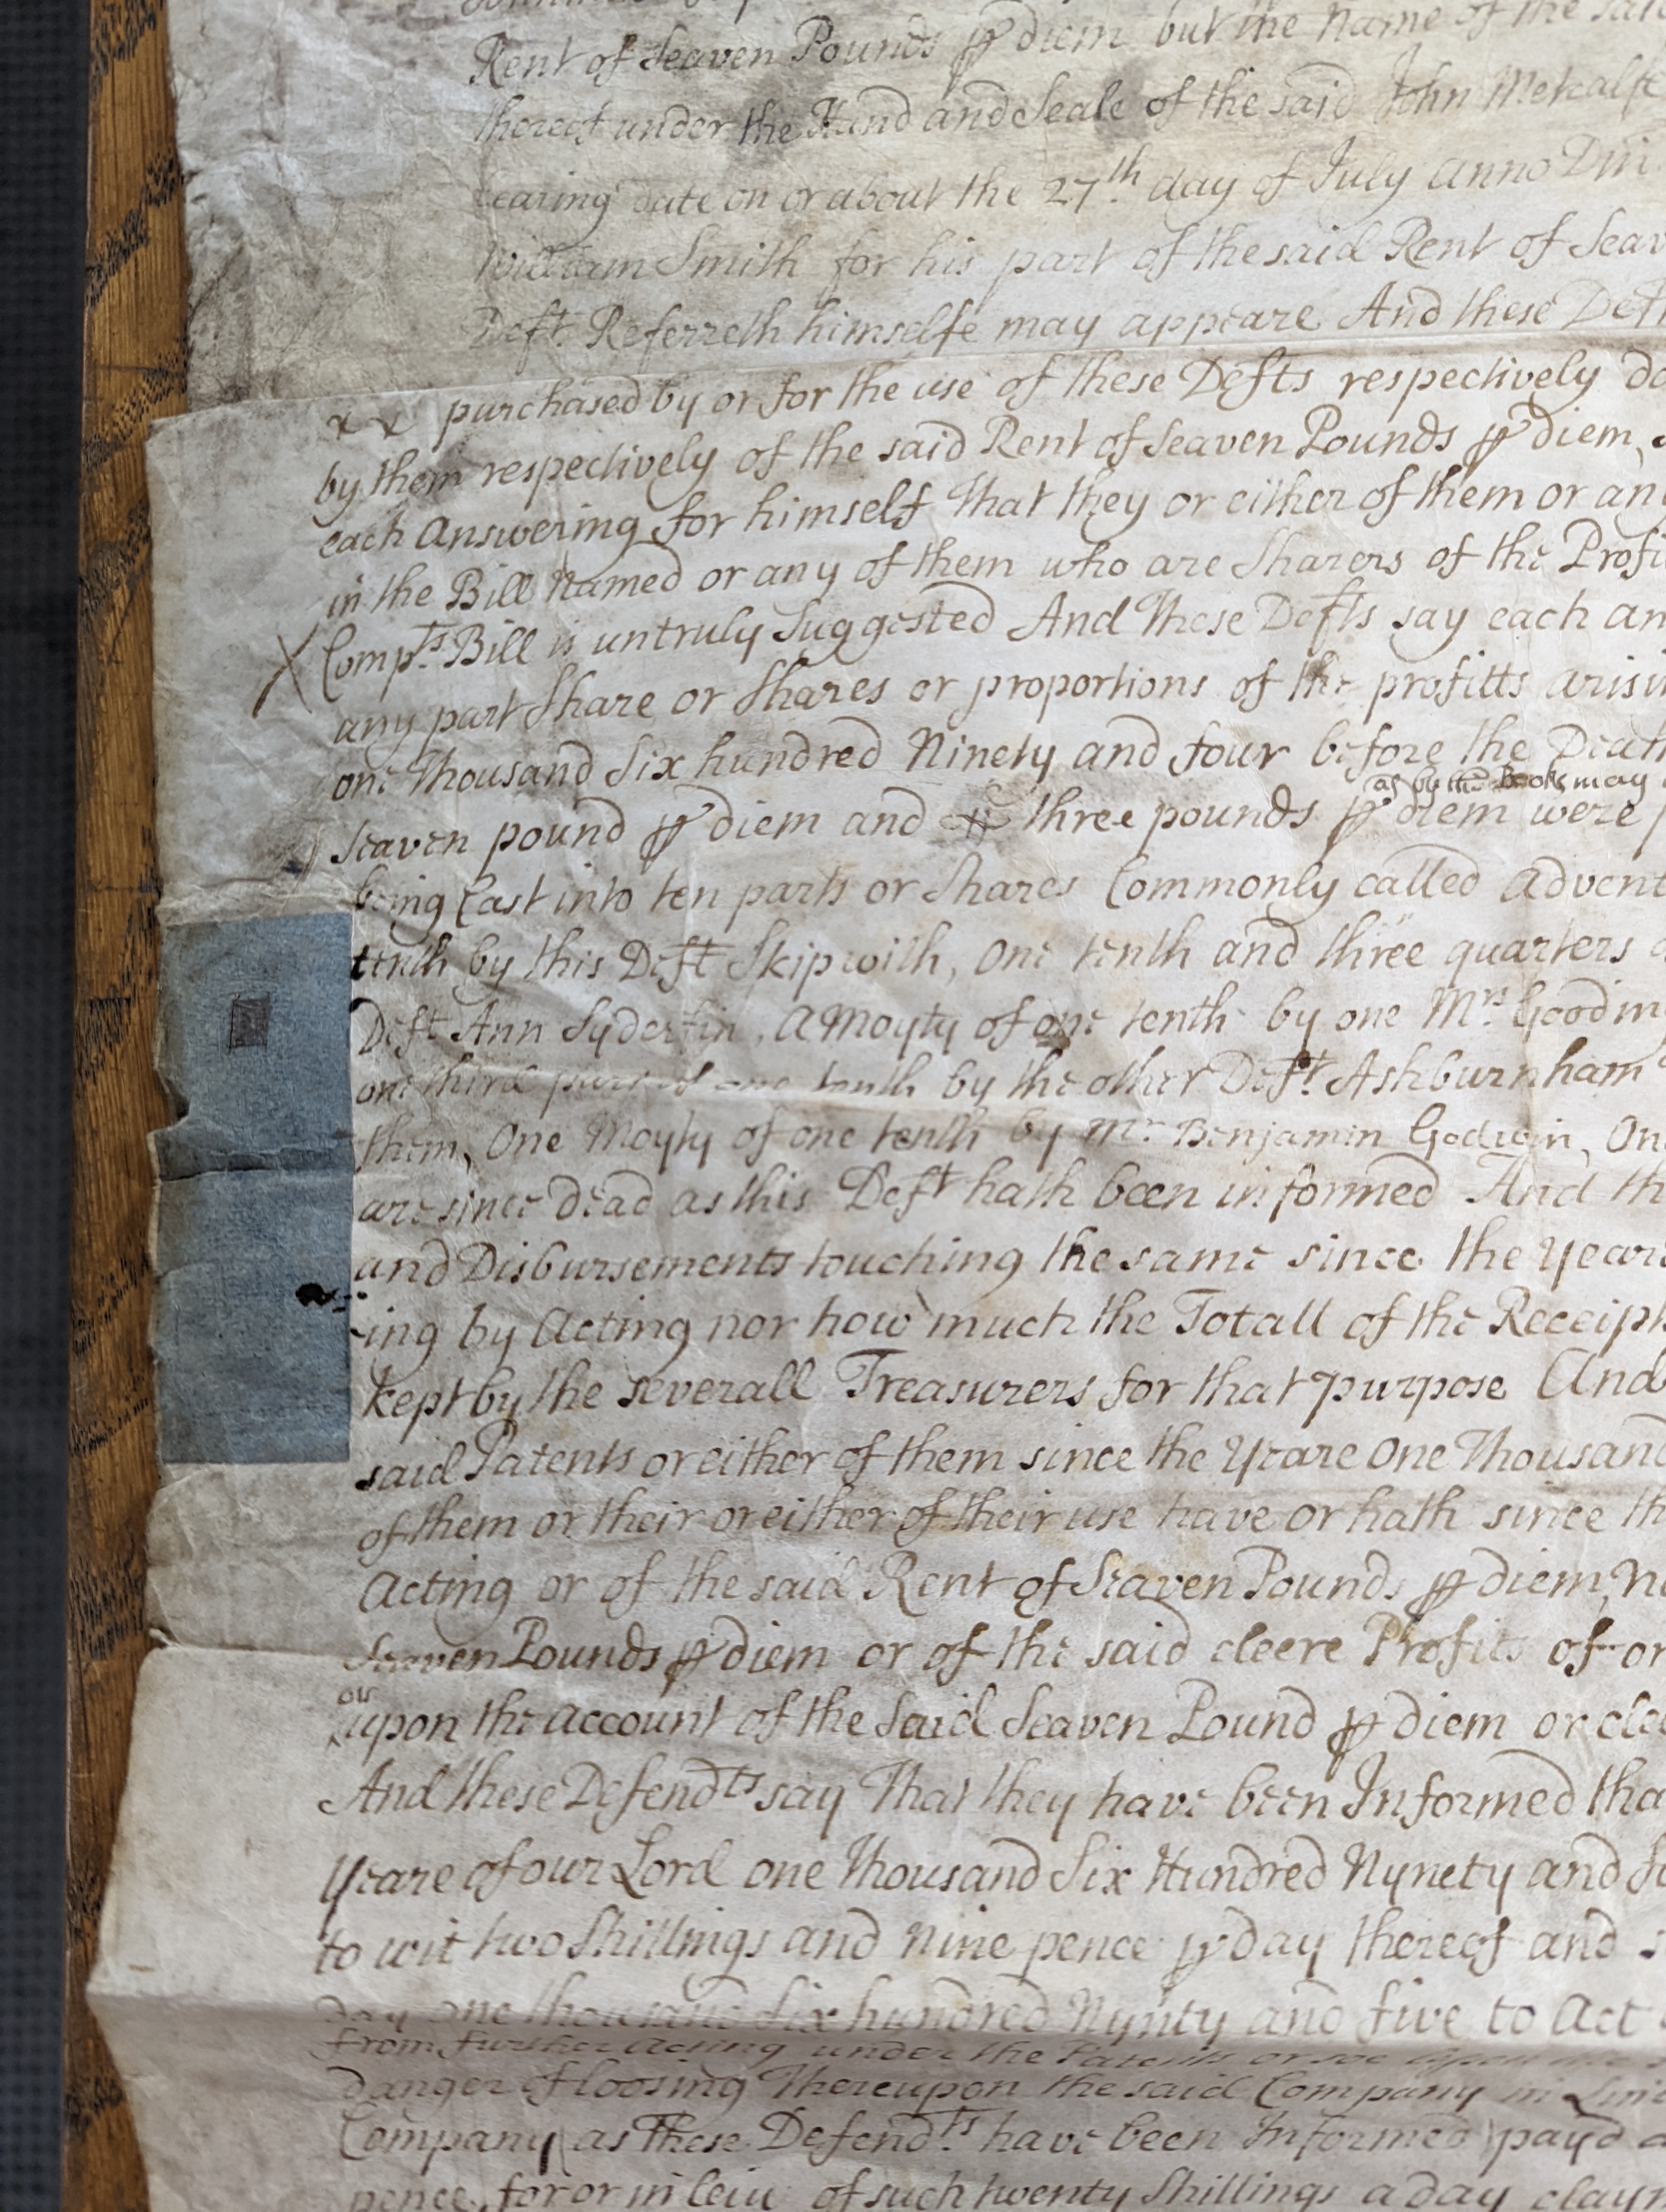 Rent of Seaven Pounds p diem but the Name of the
thereof under the Hand and Seale of the said John Metcalfe
bearing date on or about the 27th. day of July Anno Dni
William Smith for his part of the said Rent of Seav
Deft. Referreth himselfe may appeare And these Deft
x x purchased by or for the use of these Defts respectively do
by them respectively of the said Rent of Seaven Pounds p diem,
each Answering for himself That they or either of them or an
in the Bill Named or any of them who are Sharers of the Profi
X Compts. Bill is untruly Suggested And These Defts say each an
any part Share or Shares or proportions of the profitts arisi
one Thousand Six hundred Ninety and four before the Death
as by the Books may
Seaven pound p diem and three pounds p diem were
being Cast into ten parts or Shares Commonly called Advent
tenth by this Deft Skipwith, One tenth and three quarters
Deft Ann Syderfin, A Moyty of one tenth by one Mrs. Goodw
one third part of one tenth by the other Deft. Ashburnham
them, One Moyty of one tenth by Mr Benjamin Godwin, On
are since dead as this Deft hath been informed And th
and Disbursements touching the same since the Yeare
-ing by Acting nor how much the Totall of the Receipt
kept by the severall Treasurers for that purpose And
said Patents or either of them since the Yeare One Thousand
of them or their or either of their use have or hath since th
Acting or of the said Rent of Seaven Pounds p diem, N
Seaven Pounds p diem or of the said cleere Profits of or
or
upon the account of the Said Seaven Pound p diem or clee
And these Defendts say That they have been Informed tha
Yeare of our Lord one Thousand Six Hundred Nynety and
to wit two Shillings and Nine pence p day thereof and
day one thousand Six hundred Nynty and five to Act
from further Acting under the Patents or
danger of loosing Thereupon the said Company in
Company as These Defend.ts have been Informed payd
pence for or in leiu of such twenty Shillings a day